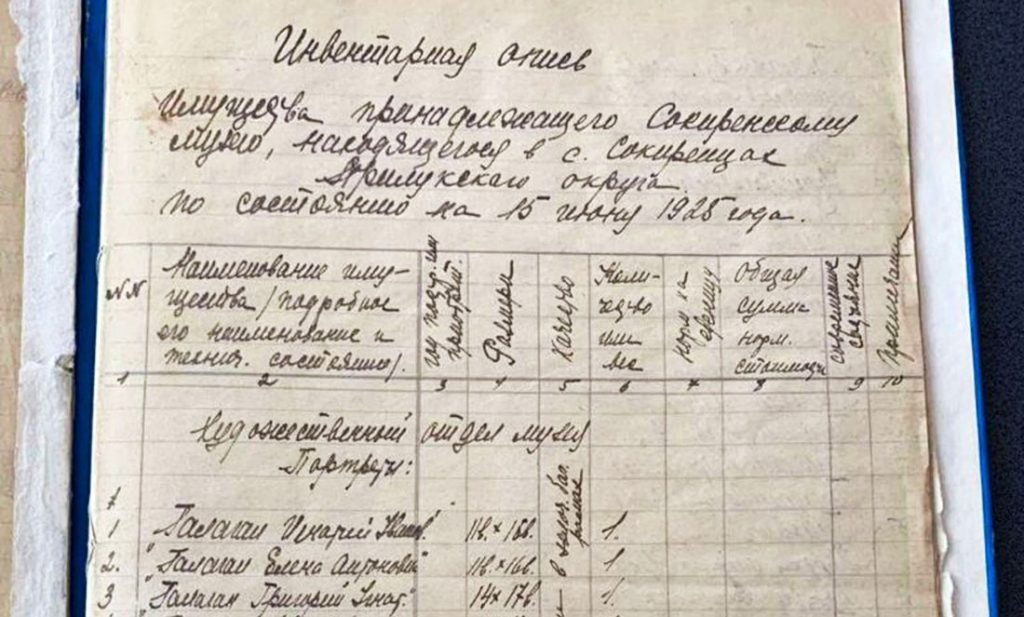 Инвентарная опись
имущества принадлежащего Сокиренскому
музею, находящегося в с. Сокиренцах
Прилукского округа
по состоянию на 15 июня 1925 года.
NN
Наименование иму-
щества /подробное
его наименование и
технич. состояние/.
Размеры
Качество
Коли-
чество
или
вес
норм. на
единицу
Общая
сумма
норм.
стоимости
Примечание
1 2 3 4 5 6 7 8 9 10
Художественный отдел музея
Портреты:
1 "Галаган Игнатий Иванов." 11в.×16в. 1.
2. "Галаган Елена Антоновна" 11в.×16в. 1
3 "Галаган Григорий Игнат." 14×17в. 1.